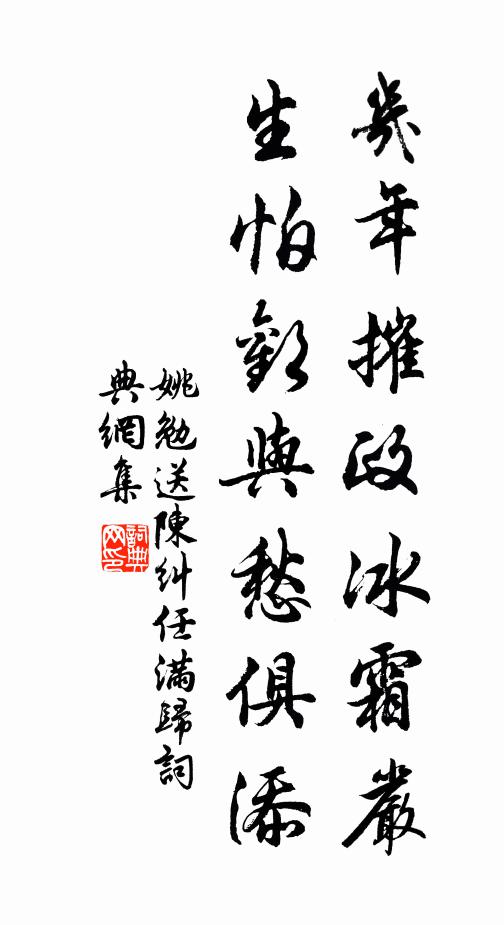 幾年摧政冰霜嚴
生怕歡與愁俱添
姚勉送陳糾任滿歸詞
典網集
詞典
網印